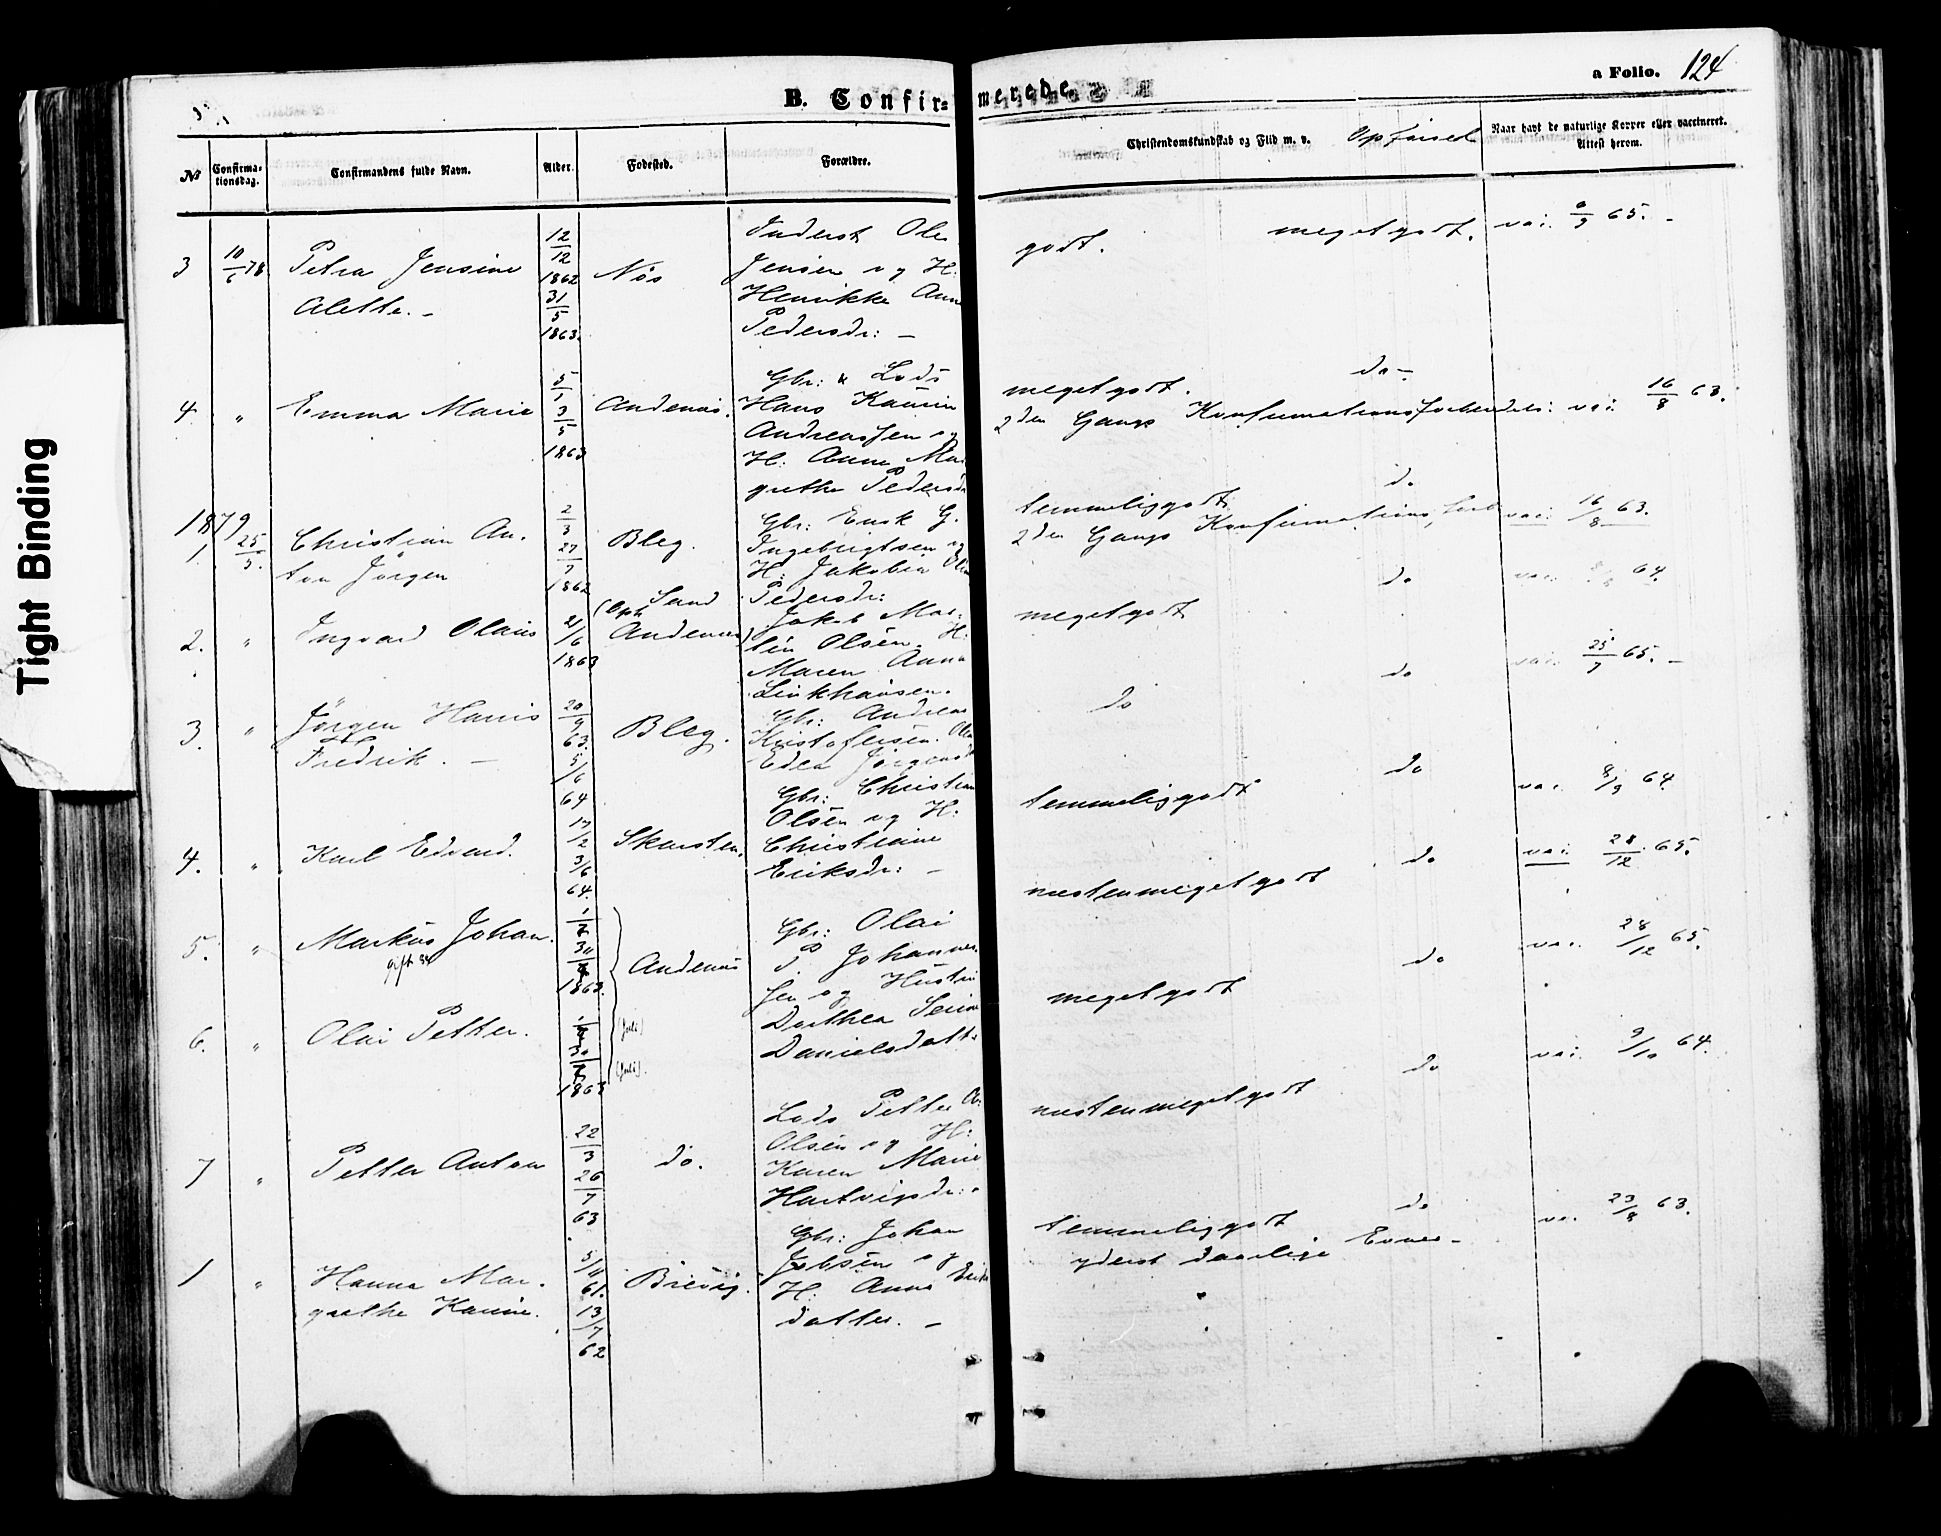 Tight Binding
B. Confir-
merede.
a Folio. 124
No
Confirma-
tionsdag.
Confirmandens fulde Navn.
Alder.
Fødested.
Forældre.
Christendomskundskab og Flid m. v.
Opførsel
Naar havt de naturlige Kopper eller vaccineret.
Attest herom.
3 10/6 78 Petra Jensine
Alette. -
12/12
1862
31/5
1863.
Nøs
Inderst Ole
Jensen og H:
Henrikke Anna
Pedersdr: -
godt.
meget godt.
vac. 65. -
4. " Emma Marie
5/1
3/5
1863
Andenæs.
Gbr: & Lods
Hans
Andreassen og
H: Anna Mar
grethe Pedersd
meget godt.
2den Gangs Konfirmationsforberedels:
do -
vac. 16/8 63.
1879
1. 25/5. Christian An.
ton Jørgen
2/3
27/7
1862
Bleg.
Gbr: Enok G.
Ingebrigtsen og
H: Jakobia
Pedersdr:
temmelig godt.
2den Gangs Konfirmations,
do
vac. 16/8 63.
2. " Ingvard Olaus
21/6
1863
Sand
(Oph
Andenæs)
Jakob Mar-
tin Olsen. H:
Maren Anna
Linkhausen.
meget godt
do
vac. 64.
3. " Jørgen Hans
Fredrik. -
20/9
63.
5/6
64
Bleg.
Gbr: Andreas
Kristofersen.
Edea Jørgensd
do
do
vac. 25/7 65. -
4. " Karl Edvard.
17/12
3/6
64.
Skarsten.
Gbr: Christian
Olsen og H:
Christiane
Eriksdr: -
temmelig godt
do
vac. 8/9 64.
5. " Markus Johan.
1863.
Andenæs
Gbr: Olai
P. Johannes
sen og Hustru
Dorthea Serine
Danielsdatt
næsten meget godt
do
vac. 28/12 65.
6. " Olai Petter.
(Juli)
(Juli).
1863
meget godt
do
vac. 28/12 65.
7 " Petter Anton
22/3
26/7
63
do.
Lods Petter A:
Olsen og H:
Karen Marie
Hartvigsdr:
næsten meget godt
do
vac. 9/10 64.
1 " Hanna Mar.
grethe Karine.
5/11
61.
13/7
62
Breivig.
Gbr: Johan
Jobsen og
H: Anna Erik
datter. -
temmelig godt
yderst daarlige Evner -
do
vac. 23/8 63.